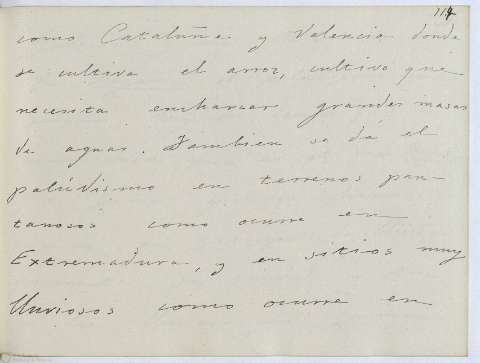 114
como Cataluña y Valencia donde
se cultiva el arroz, cultivo que
necesita encharcar grandes masas
de aguas. Tambien se dá el
palúdismo en terrenos pan-
tanosos como ocurre en
Extremadura, y en sitios muy
lluviosos como ocurre en